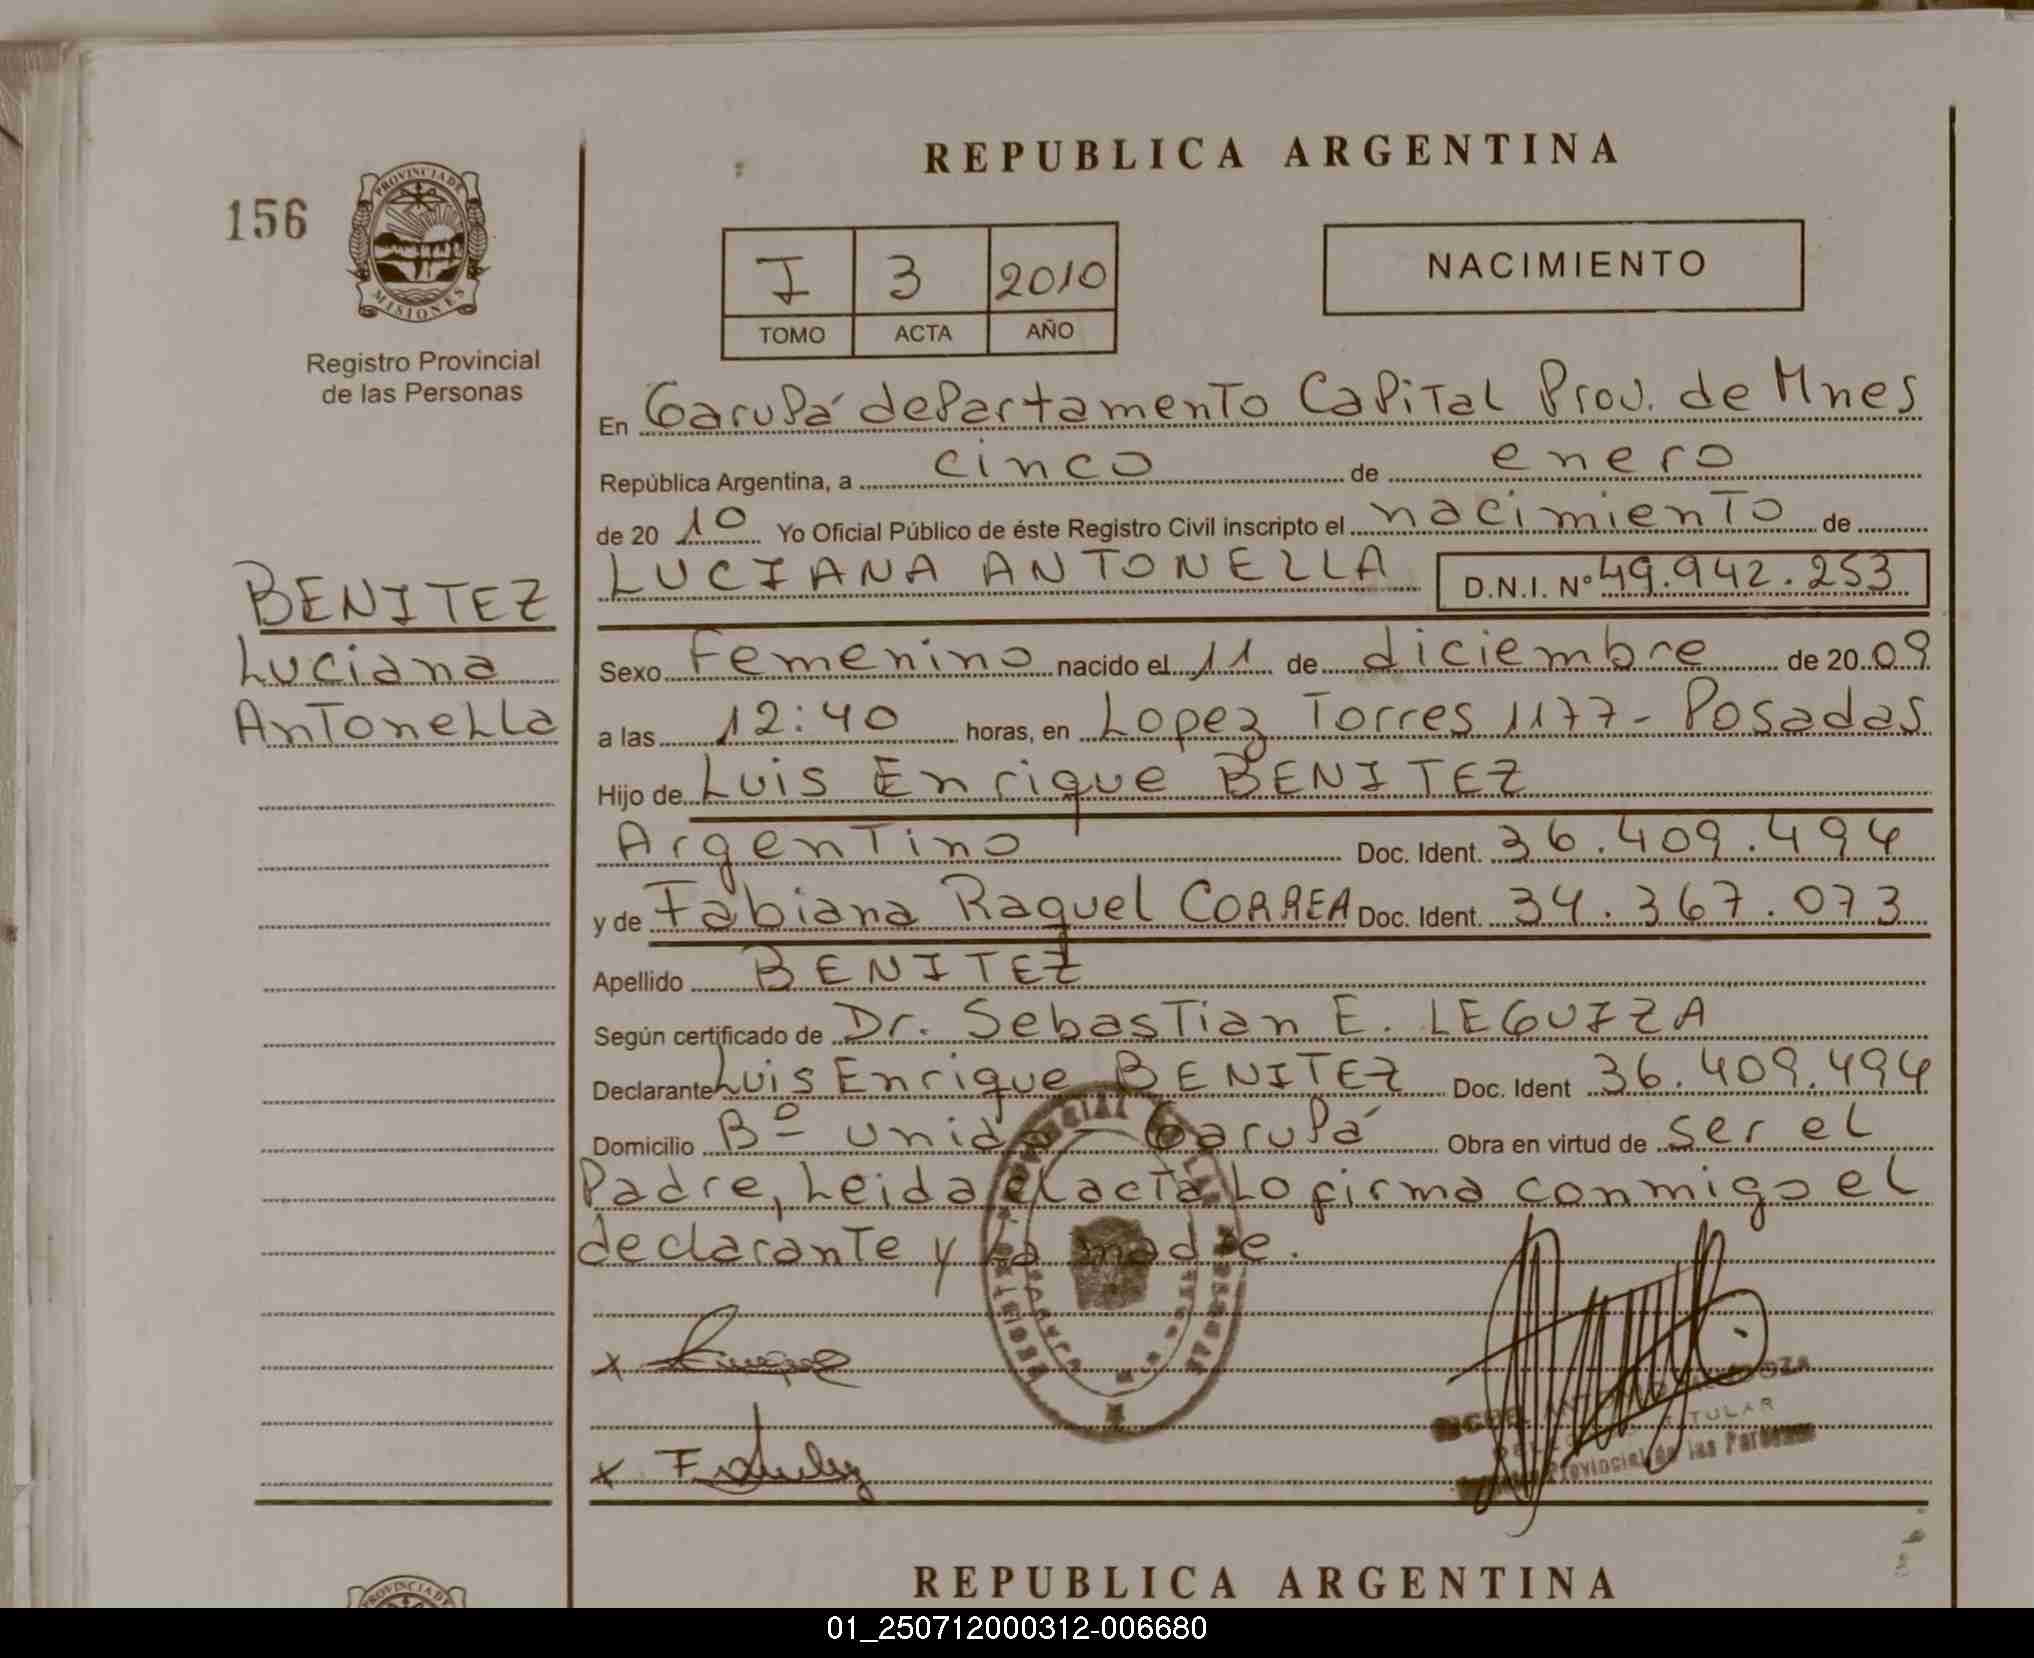 REPUBLICA ARGENTINA
156
PROVINCIA DE
MISIONES
Registro Provincial
de las Personas
I 3 2010
TOMO ACTA AÑO
NACIMIENTO
En Garupá departamento Capital Prov. de Mnes
República Argentina, a cinco de enero
de 20 10 Yo Oficial Público de éste Registro Civil inscripto el nacimiento de
LUCIANA ANTONELLA D.N.I. Nº 49.942.253
BENITEZ
Luciana
Antonella
Sexo Femenino nacido el 11 de diciembre de 20 09
a las 12:40 horas, en Lopez Torres 1177 - Posadas
Hijo de Luis Enrique BENITEZ
Argentino Doc. Ident. 36.409.494
y de Fabiana Raquel CORREA Doc. Ident. 34.367.073
Apellido BENITEZ
Según certificado de Dr. Sebastian E. LEGUIZA
Declarante Luis Enrique BENITEZ Doc. Ident 36.409.494
Domicilio Bº unida - Garupá Obra en virtud de ser el
Padre, Leida el acta Lo firma conmigo el
declarante y la madre.
x
x
TITULAR
Provincial de las Personas
REPUBLICA ARGENTINA
PROVINCIA DE
01_250712000312-006680